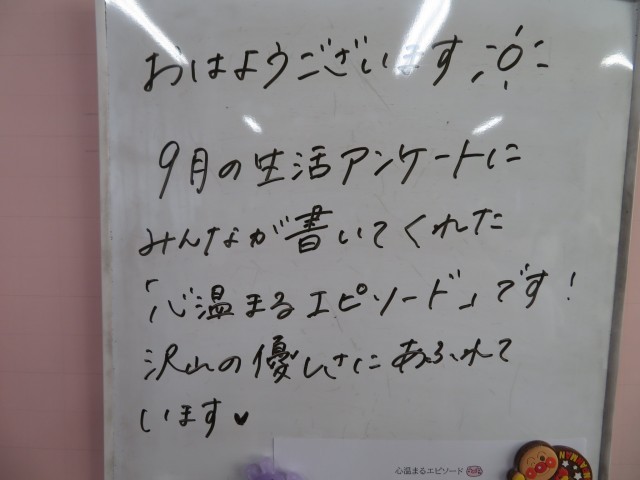 おはようございます
9月の生活アンケートに
みんなが書いてくれた
「心温まるエピソード」です!
沢山の優しさにあふれて
います♥
心温まるエピソード